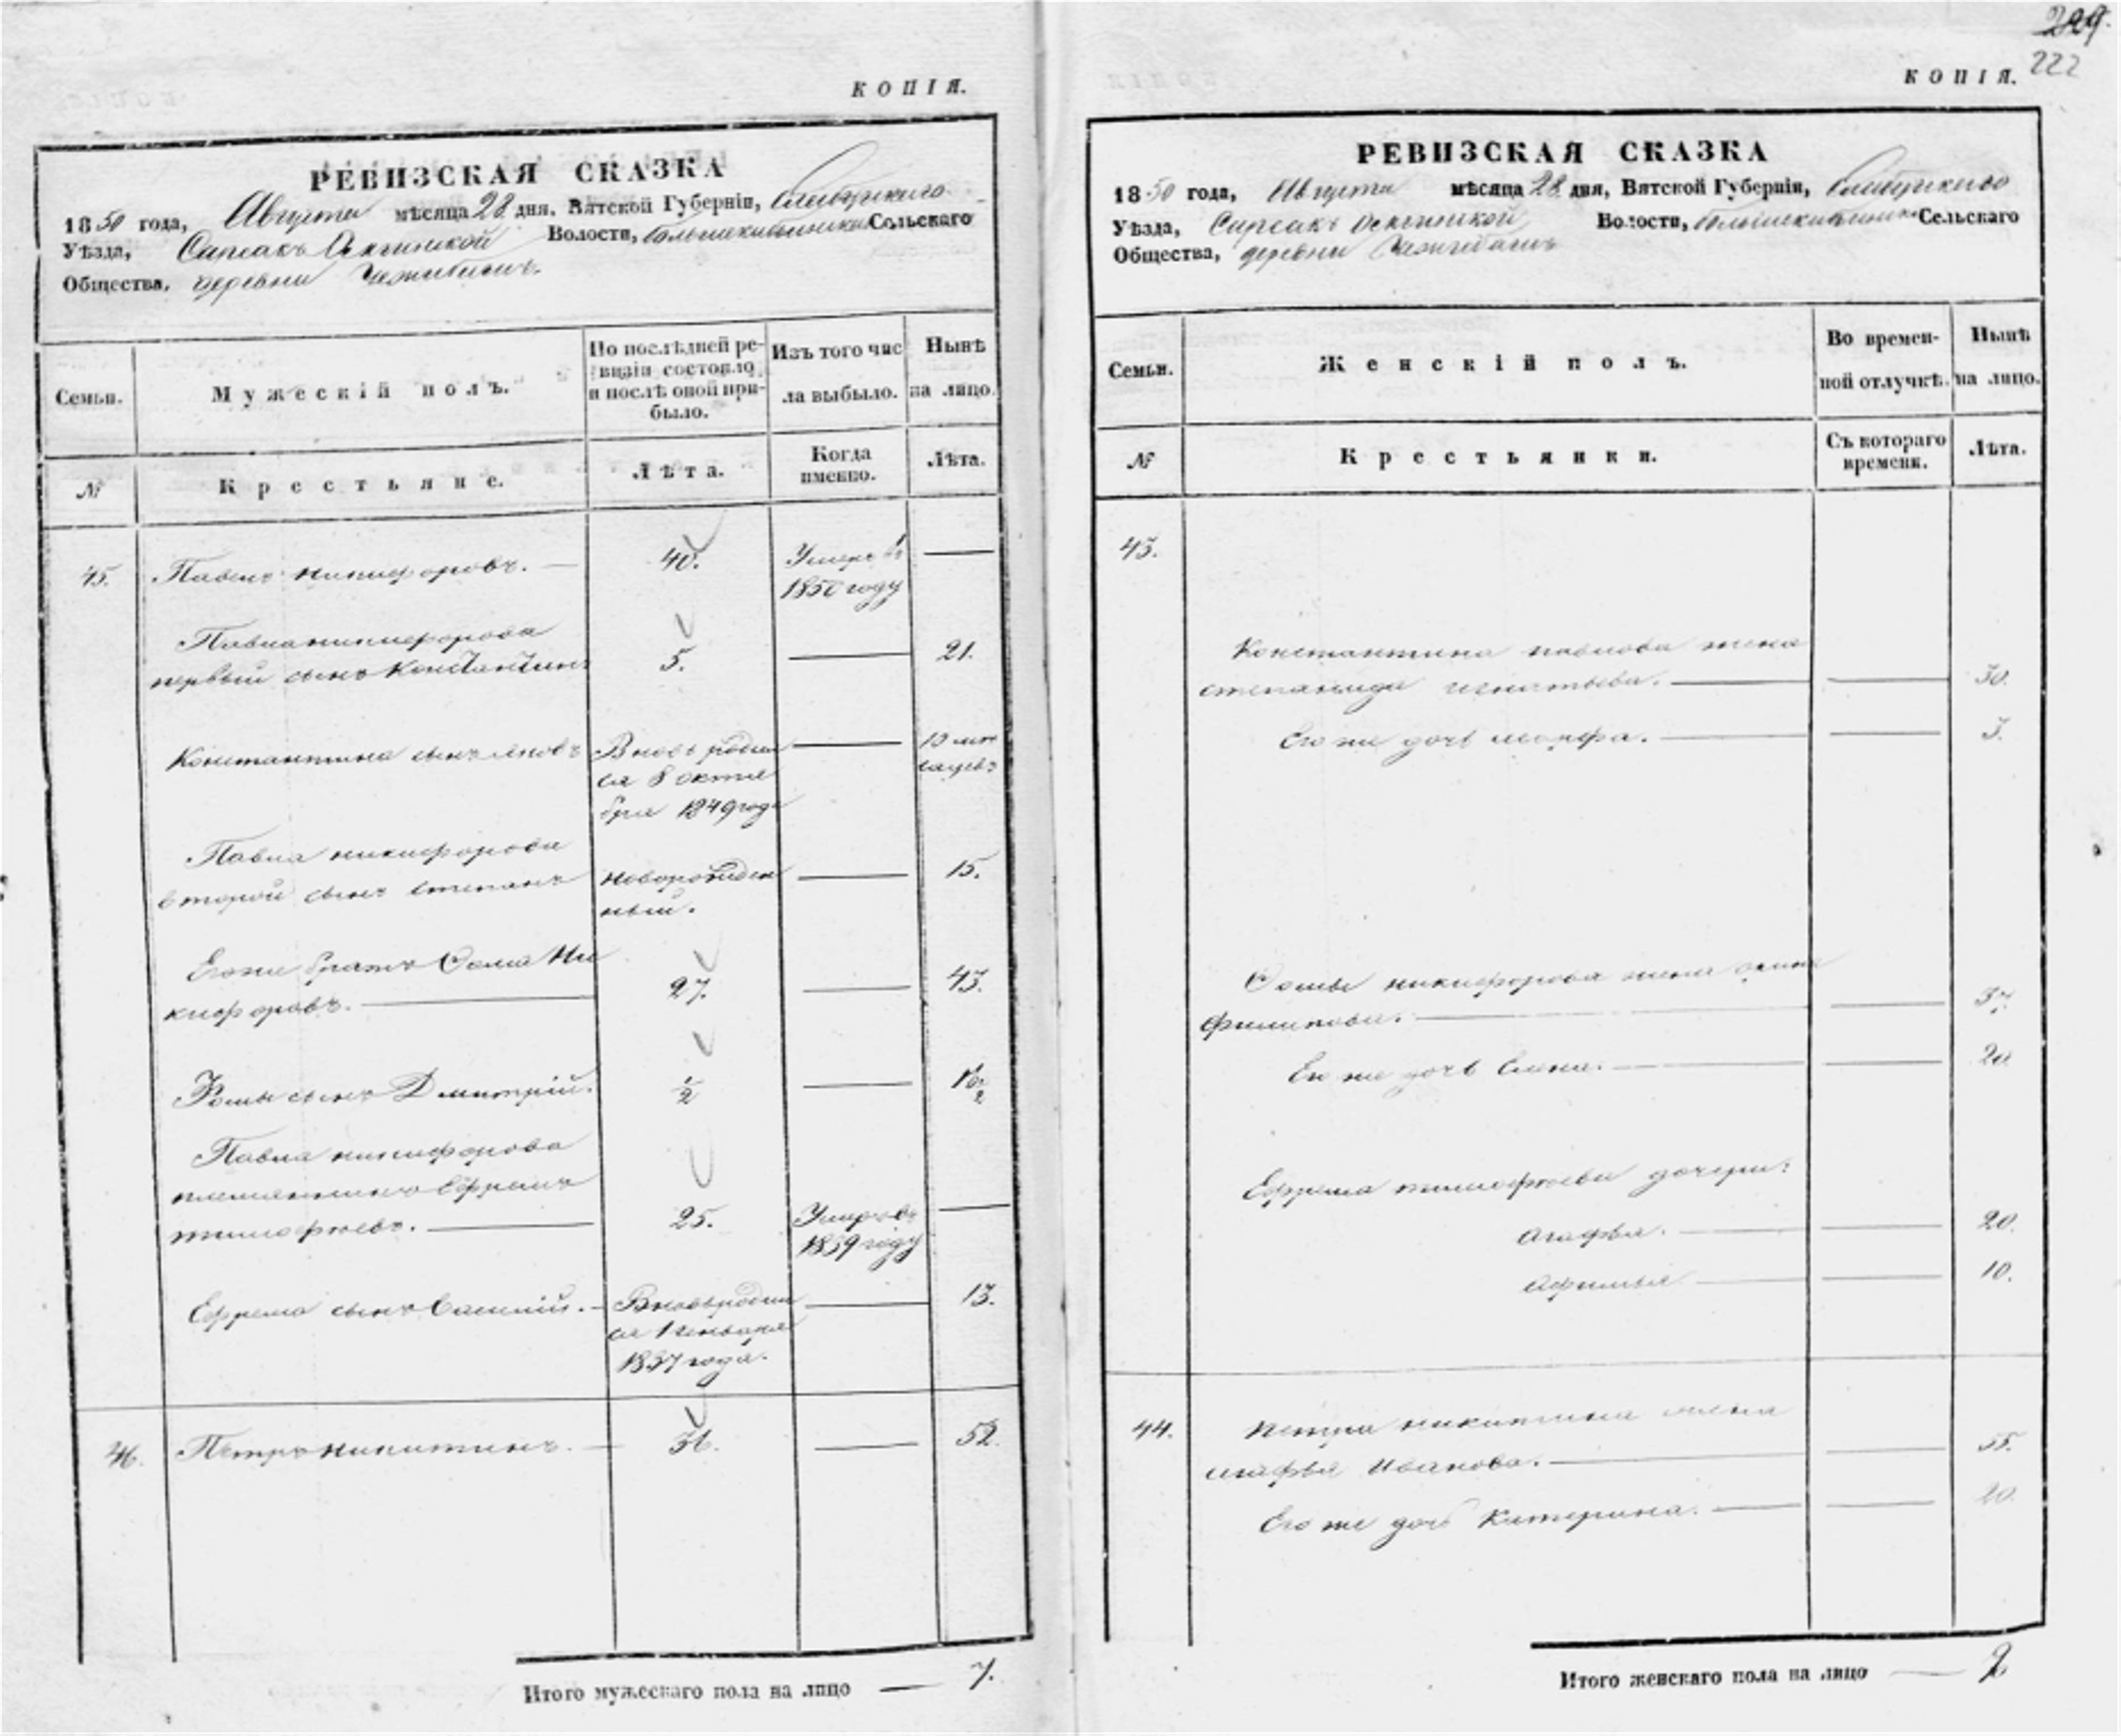 КОПІЯ.
РЕВИЗСКАЯ СКАЗКА
1850 года, Августа мѣсяца 28 дня, Вятской Губерніи,
Уѣзда, Волости, Сельскаго
Общества, деревни
Семьи.
Мужескій полъ.
По послѣдней ре-
визіи состояло
и послѣ оной при-
было.
Изъ того чис
ла выбыло.
Нынѣ
на лицо.
№
Крестьяне.
Лѣта.
Когда
именно.
Лѣта.
45. Павелъ никифоровъ. — 40. Умеръ въ —
1850 году
Павла никифорова
первый сынъ Константинъ 5. — 21.
Константина сынъ яковъ Вновь родил — 10 мѣ
ся 8 октя сяцевъ
бря 1849 года
Павла никифорова
второй сынъ степанъ новорожден — 15.
ный.
Его же братъ Фома Ни
кифоровъ. — 27. — 43.
Фомы сынъ Дмитрій. 1/2 — 16 1/2
Павла никифорова
племянникъ Ефремъ
тимофѣевъ. — 25. Умеръ въ —
1839 году
Ефрема сынъ Василій. — Вновь родил — 13.
ся 1 января
1837 года.
46. Петръ никитинъ. — 36. — 52.
Итого мужескаго пола на лицо — 7.
209.
222
КОПІЯ.
РЕВИЗСКАЯ СКАЗКА
1850 года, Августа мѣсяца 28 дня, Вятской Губерніи,
Уѣзда, Волости, Сельскаго
Общества, деревни
Семьи.
Женскій полъ.
Во времен-
ной отлучкѣ.
Нынѣ
на лицо.
№
Крестьянки.
Съ котораго
времени.
Лѣта.
45.
Константина павлова жена
степанида игнатьева. — — 30.
Его же дочь марфа. — — 3.
Фомы никифорова жена
филипова. — — 37.
Его же дочь Елена. — — 20
Ефрема тимофѣева дочери:
агафья. — — 20.
афимья — — 10.
44. Петра никитина жена
агафья Иванова. — — 55.
Его же дочь Катерина. — — 20.
Итого женскаго пола на лицо —